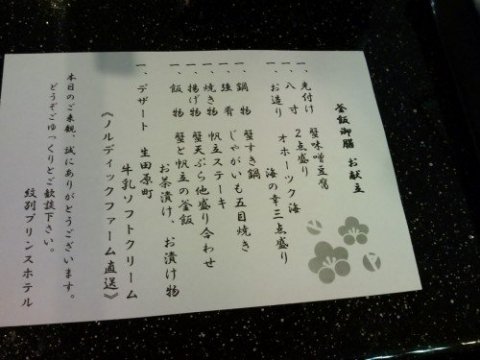 釜飯御膳 お献立
一、先付け 蟹味噌豆腐
一、八寸 2点盛り
一、お造り オホーツク海
海の幸三点盛り
一、鍋物 蟹すき鍋
一、強肴 じゃがいも五目焼き
一、焼き物 帆立ステーキ
一、揚げ物 蟹天ぷら他盛り合わせ
一、飯物 蟹と帆立の釜飯
お茶漬け、お漬け物
一、デザート 生田原町
牛乳ソフトクリーム
《ノルディックファーム直送》
本日のご来館、誠にありがとうございます。
どうぞごゆっくりとご歓談下さい。
紋別プリンスホテル